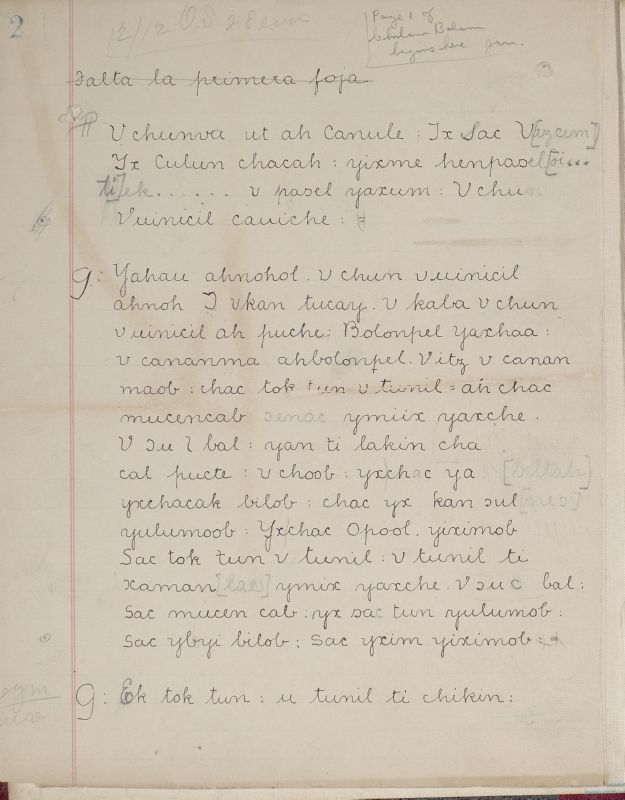 2
12/12 O.S 28 cms
Page 1 of
Chilam Balam
begins here
Falta la primera foja
V chunva ut ah Canule : Ix Sac V[aycum]
Yx Culun chacah : yixme henpasel[oi...
ti]ek...... v pasel yaxum : V chu
Vuinicil cauiche :
9: Yahau ahnohol . v chun vuinicil
ahnoh I vkan tucay . v kaba v chun
vuinicil ah puche : Bolonpel yaxhaa :
v cananma ahbolonpel . Vitz v canan
maob : chac tok tun v tunil = ah chac
mucencab ɔenac ymiix yaxche .
V ɔu l bal : yan ti lakin cha
cal pucte : v choob : yxchac ya [biltah]
yxchacak bilob : chac yx kan ɔul[nes]
yulumoob : Yxchac Opool . yiximob
Sac tok tun v tunil : v tunil ti
xaman[lac] ymix yaxche . V ɔu c bal :
Sac mucen cab : yx sac tun yulumob :
Sac ybyi bilob : Sac yxim yiximob :
9: Ek tok tun : u tunil ti chikin :